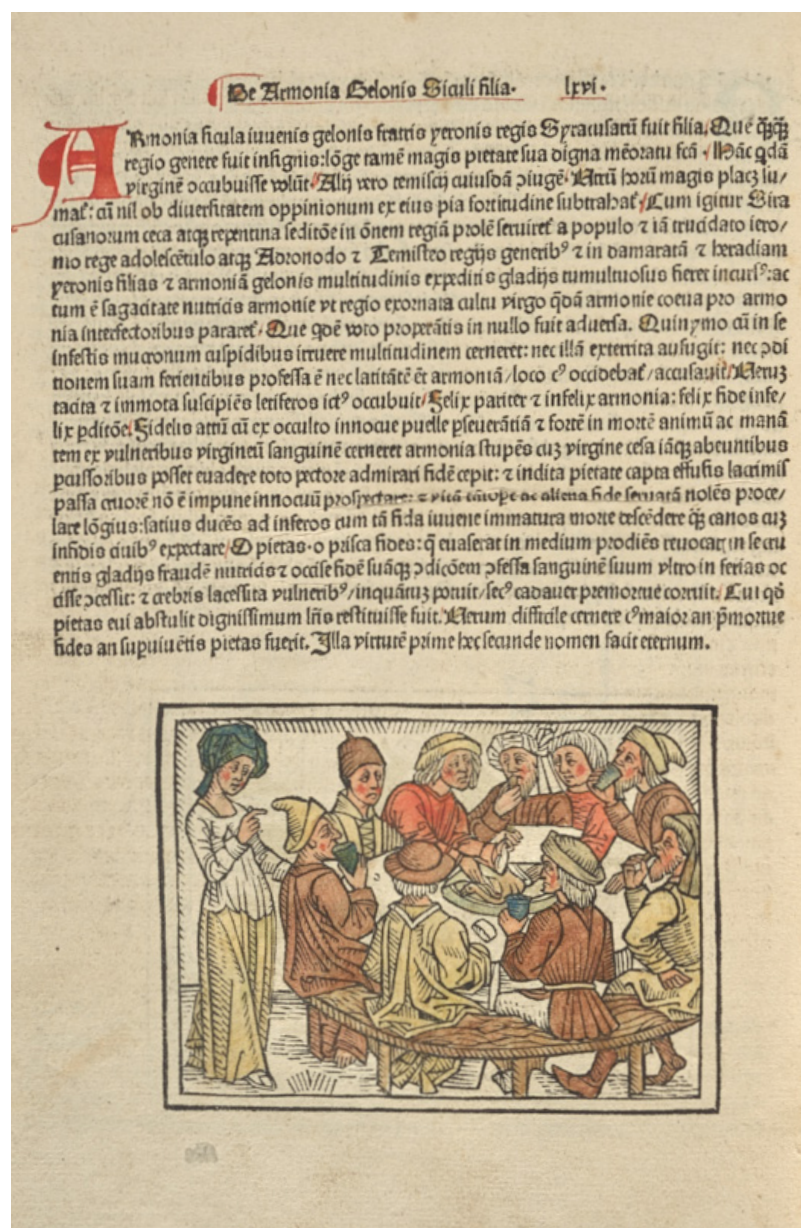 De Armonia Gelonis Siculi filia. lxvi.
ARmonia sicula iuuenis gelonis fratris yeronis regis Syracusarū fuit filia. Que q̄q̄
regio genere fuit insignis: lōge tamē magis pietate sua digna mēoratu fcā. Hāc qdā
virginē occubuisse volūt. Alij vero temiscij cuiusdā ↄiugē. Utrū horū magis placꝫ su/
mat̄: cū nil ob diuersitatem oppinionum ex eius pia fortitudine subtrahat̄. Cum igitur Sira
cusanorum ceca atqꝫ repentina seditōe in ōnem regiā prolē seruiret̄ a populo ⁊ iā trucidato iero/
nio rege adolescētulo atqꝫ Adronodo ⁊ Temisteo regijs generibꝰ ⁊ in damaratā ⁊ heradiam
yeronis filias ⁊ armoniā gelonis multitudinis expeditis gladijs tumultuosus fieret incursꝰ: ac
tum ē sagacitate nutricis armonie vt regio exornata cultu virgo qdā armonie coeua pro armo
nia interfectoribus pararet̄. Que qdē voto properātis in nullo fuit aduersa. Quinymo cū in se
infestis mucronum cuspidibus irruere multitudinem cerneret: nec illā exterrita aufugit: nec ↄdi
tionem suam ferientibus professa ē nec latitātē ēt armoniā/loco cꝰ occidebat̄/accusauit/Uerū
tacita ⁊ immota suscipiēs letiferos ictꝰ occubuit/Felix pariter ⁊ infelix armonia: felix fide infe/
lix ꝑditōe. Fidelis attn̄ cū ex occulto innocue puelle ꝑseuerātiā ⁊ fortē in mortē animū ac manā
tem ex vulneribus virgineū sanguinē cerneret armonia stupēs cuꝫ virgine cesa iāqꝫ abeuntibus
ꝑcussoribus posset euadere toto pectore admirari fidē cepit: ⁊ indita pietate capta effusis lacrimis
passa cruorē nō ē impune innocuū prospectare: ⁊ vitā ac aliena fide seruatā nolēs proce/
lare lōgius: satius ducēs ad inferos cum tā fida iuuene immatura morte descēdere q̄ canos cuꝫ
infidis ciuibꝰ expectare/O pietas. o prisca fides: q̄ euaserat in medium prodiēs reuocat in se cru
entis gladijs fraudē nutricis ⁊ occise fidē suāqꝫ ↄdicōem ↄfessa sanguinē suum vltro in ferias oc
cisse ↄcessit: ⁊ crebris lacessita vulneribꝰ/inquātuꝫ potuit/secꝰ cadauer premortue corruit. Cui qd̄
pietas eui abstulit dignissimum lr̄is restituisse fuit. Uerum difficile cernere cꝰ maior an p̄mortue
fides an supuiuētis pietas fuerit. Illa virtutē prime hec secunde nomen facit eternum.